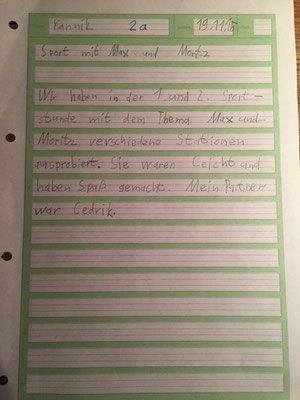 Yannik 2a 19.11.15
Sport mit Max und Moritz
Wir haben in der 1. und 2. Sport-
stunde mit dem Thema Max und
Moritz verschiedene Stationen
ausprobiert. Sie waren Leicht und
haben Spaß gemacht. Mein Partner
war Cedrik.